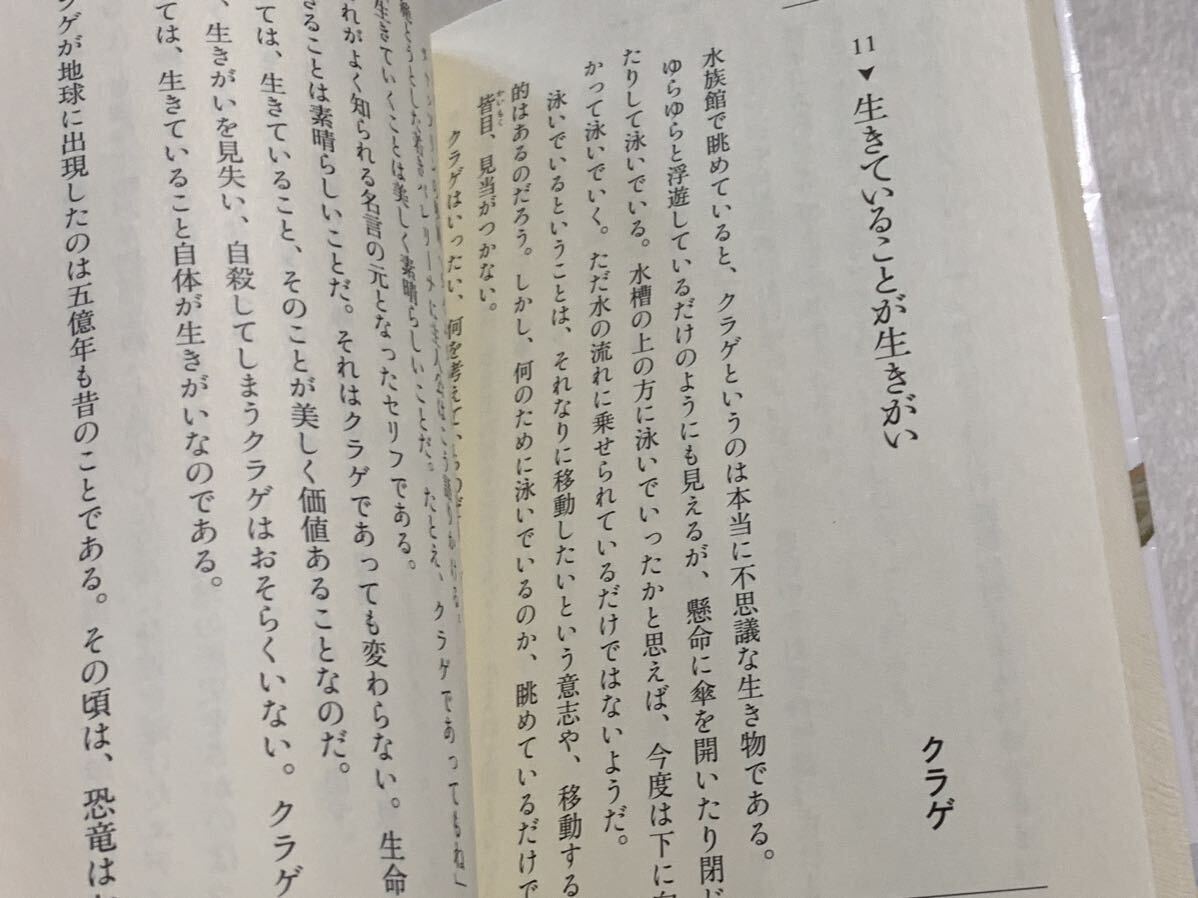 11▼生きていることが生きがい
クラゲ
水族館で眺めていると、クラゲというのは本当に不思議な生き物である。
ゆらゆらと浮遊しているだけのようにも見えるが、懸命に傘を開いたり閉じ
たりして泳いでいる。水槽の上の方に泳いでいったかと思えば、今度は下に向
かって泳いでいく。ただ水の流れに乗せられているだけではないようだ。
泳いでいるということは、それなりに移動したいという意志や、移動する
的はあるのだろう。しかし、何のために泳いでいるのか、眺めているだけで
皆目、見当がつかない。
かいもく
クラゲはいったい、何を考えて
生きていくことは美しく素晴らしいことだ。たとえ、クラゲであってもね」
れがよく知られる名言の元となったセリフである。
きることは素晴らしいことだ。それはクラゲであっても変わらない。生命
ては、生きていること、そのことが美しく価値あることなのだ。
、生きがいを見失い、自殺してしまうクラゲはおそらくいない。クラゲ
ては、生きていること自体が生きがいなのである。
ラゲが地球に出現したのは五億年も昔のことである。その頃は、恐竜は